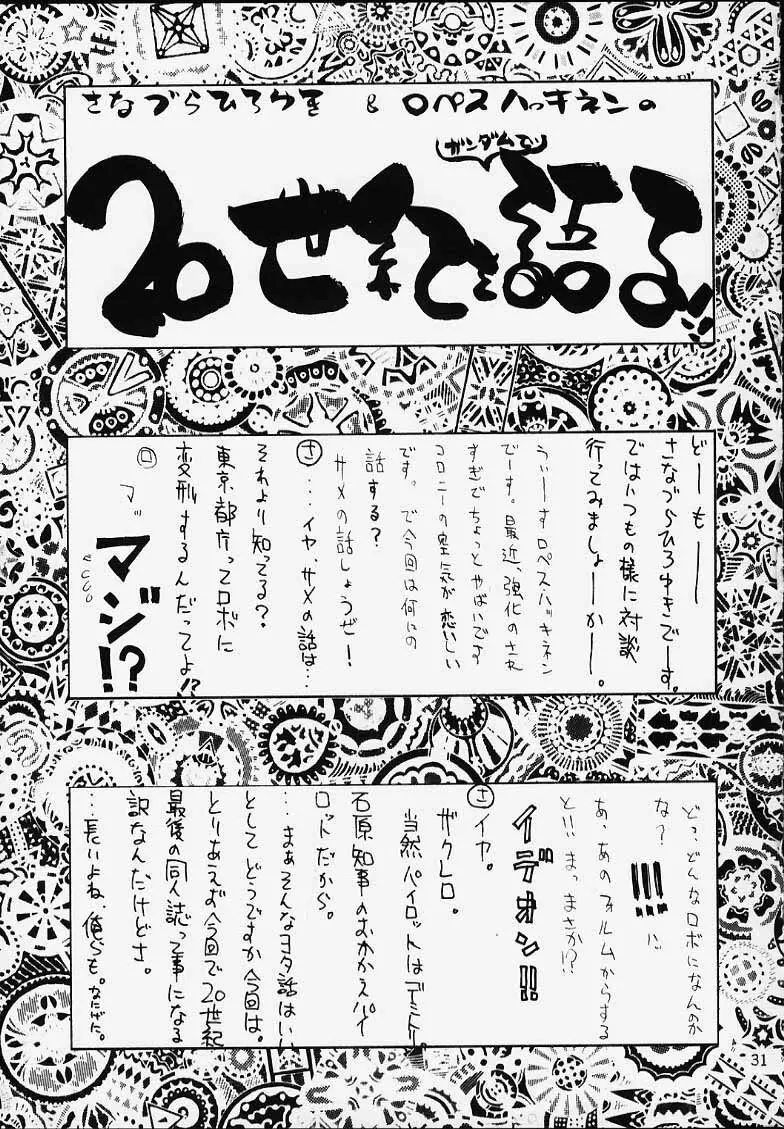 さなづらひろゆき & ロペスハッキネンの
ガンダムで
20世紀を語る!!
どーもーー
さなづらひろゆきでーす。
ではいつもの様に対談
行ってみましょーかー。
うぃーーすロペスハッキネン
でーす。最近、強化のされ
すぎでちょっとやばいです
コロニーの空気が恋しい
です。で今回は何の
話する?
サメの話しようぜー!
さ …イヤ、サメの話は…
それより知ってる?
東京都庁ってロボに
変形するんだってよ!?
ロ マッ
マジ!?
どっ、どんなロボになんのか
な?
!!!
ハ
あ、あのフォルムからする
と!!まっまさか!?
イデオン!!
さ イヤ。
ザクレロ。
当然パイロットはデミトリー。
石原知事のおかかえパイ
ロットだから。
…まぁそんなヨタ話はいい
としてどうですか今回は。
とりあえず今回で20世紀
最後の同人誌って事になる
訳なんだけどさ。
…長いよね、俺らも。
31